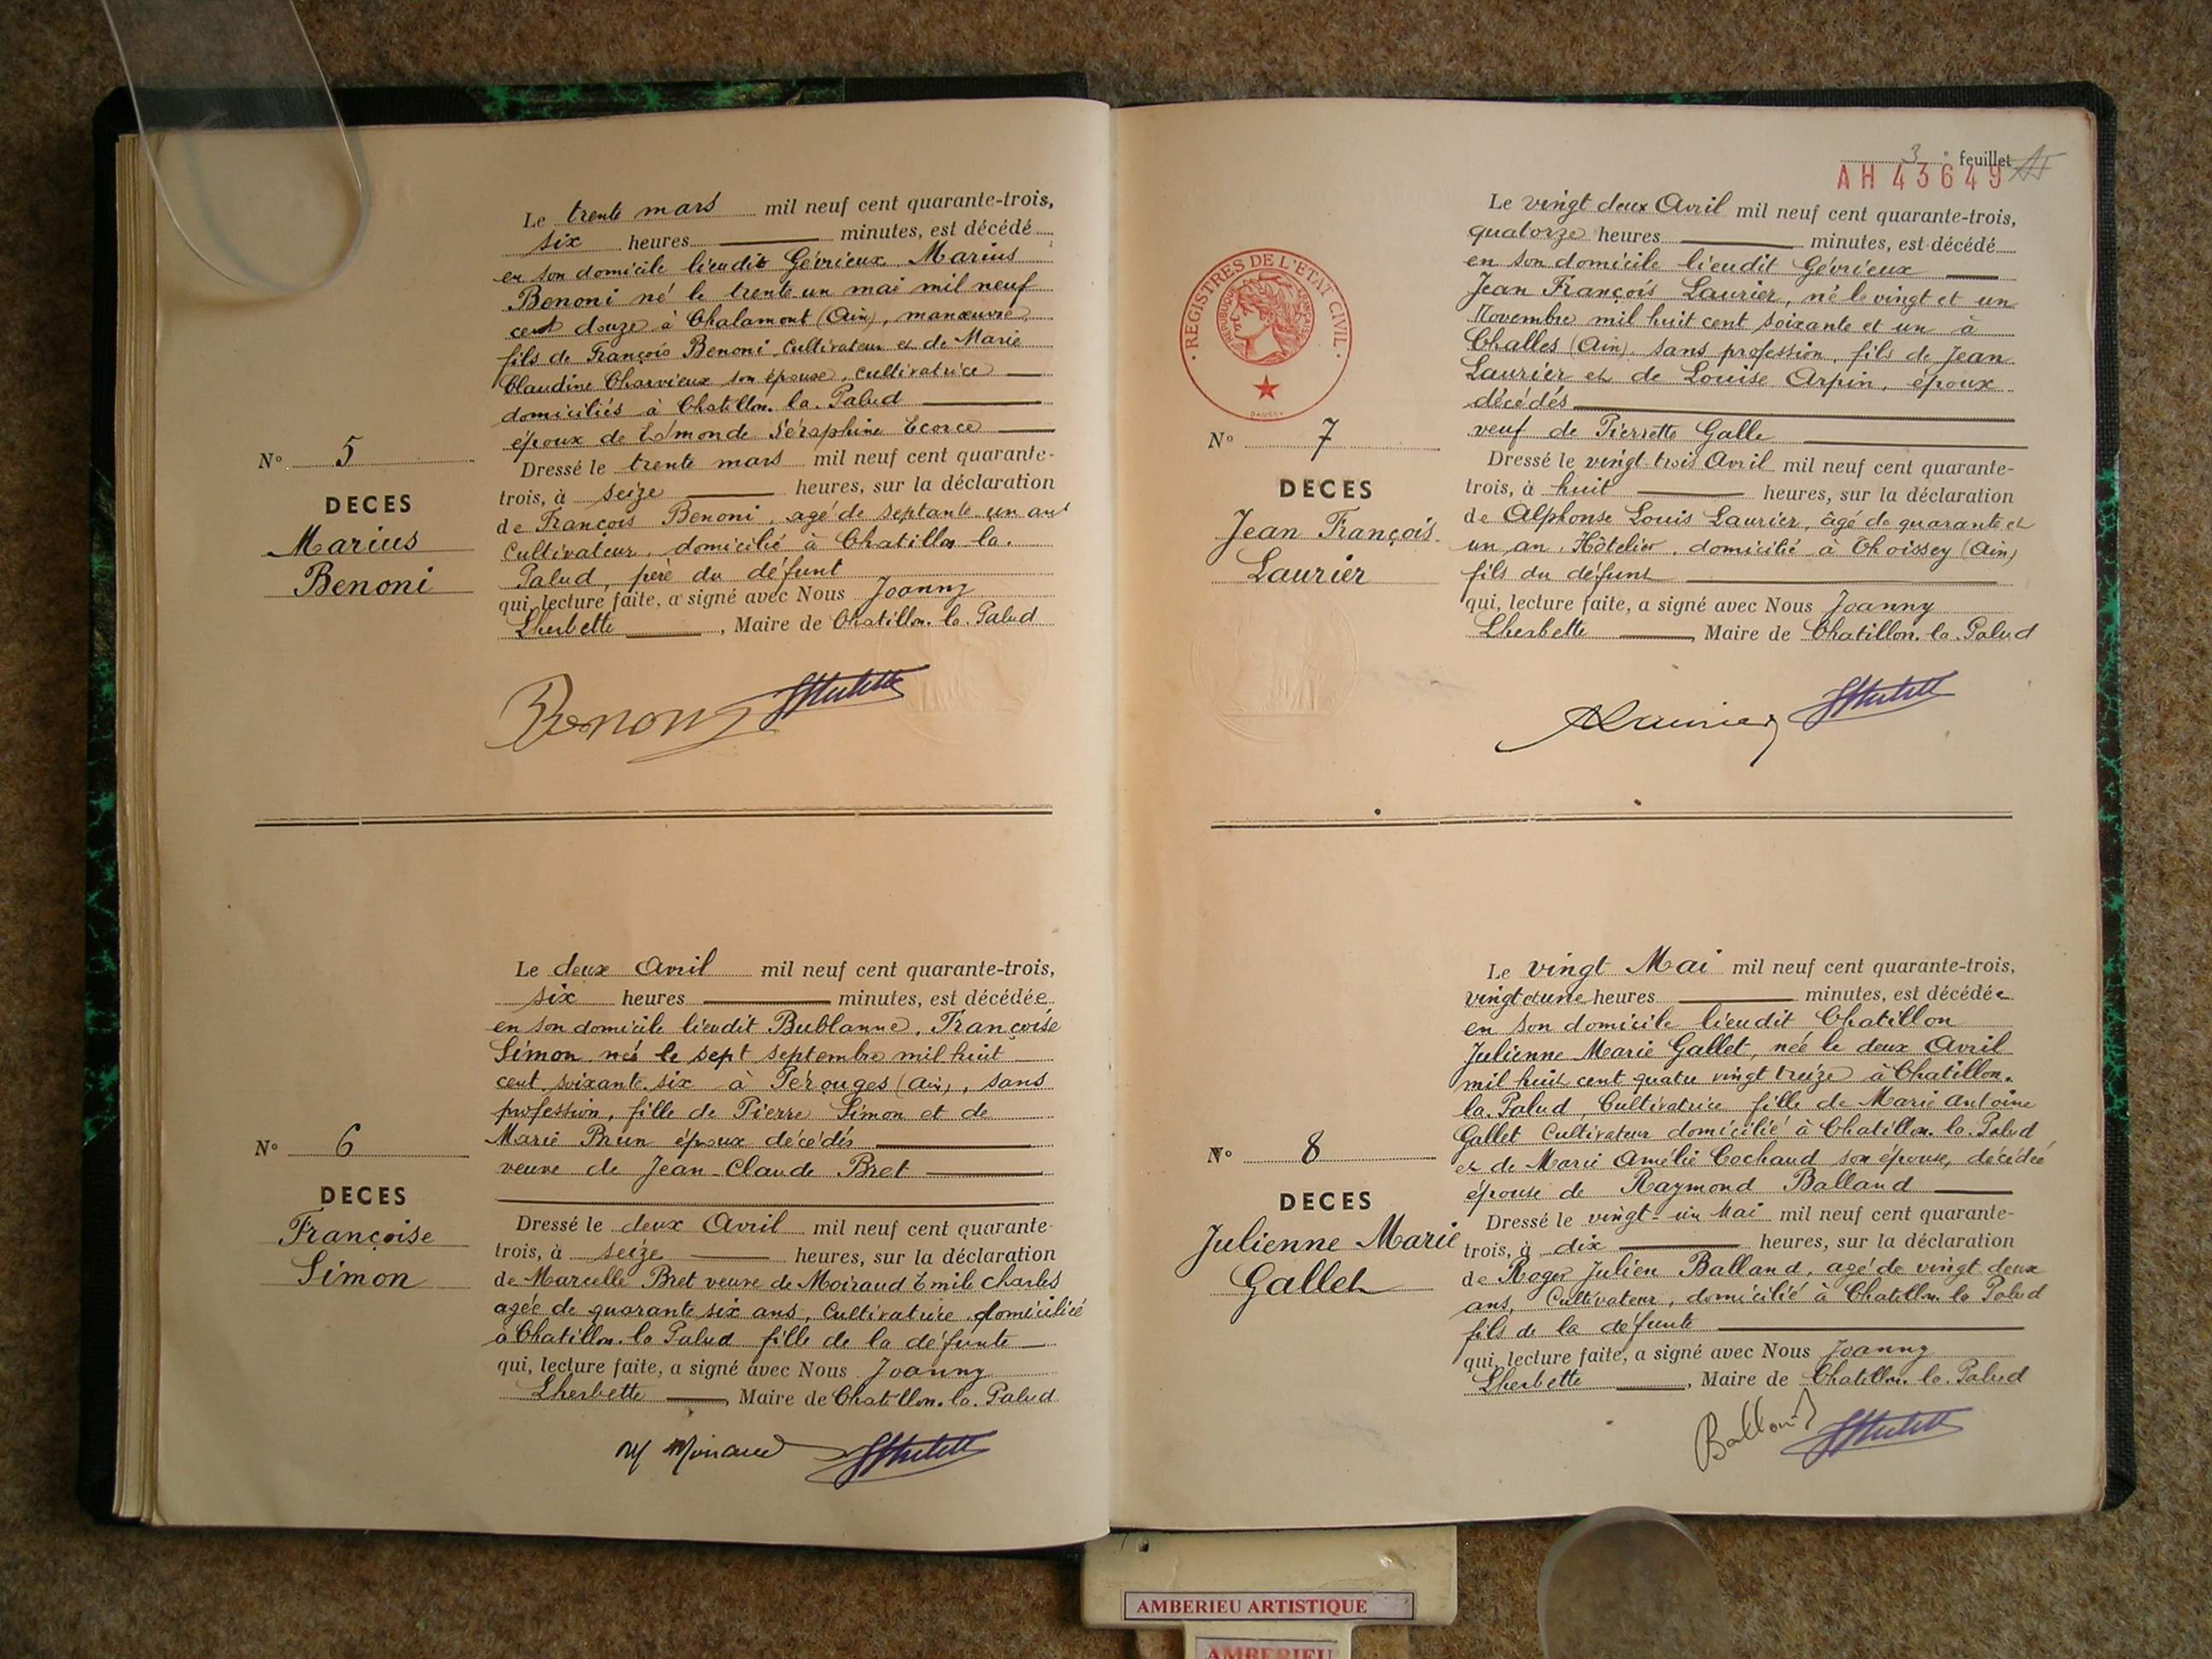 Le trente mars mil neuf cent quarante-trois,
six heures minutes, est décédé
en son domicile lieudit Gévrieux, Marius
Benoni né le trente un mai mil neuf
cent douze à Chalamont (Ain), manœuvre,
fils de François Benoni, Cultivateur et de Marie
Claudine Charvieux son épouse, cultivatrice
domiciliés à Chatillon. la. Palud
époux de Edmonde Séraphine Ecorce
N° 5
DECES
Marius
Benoni
Dressé le trente mars mil neuf cent quarante-
trois, à seize heures, sur la déclaration
de François Benoni, agé de septante un ans
Cultivateur, domicilié à Chatillon la.
Palud, père du défunt
qui, lecture faite, a signé avec Nous Joanny
Lherbette, Maire de Chatillon. la. Palud
Benoni
Le deux Avril mil neuf cent quarante-trois,
six heures minutes, est décédée
en son domicile lieudit Bublanne, Françoise
Simon née le sept septembre mil huit
cent soixante six à Pérouges (Ain), sans
profession, fille de Pierre Simon et de
Marie Brun époux décédés
veuve de Jean-Claude Bret
N° 6
DECES
Françoise
Simon
Dressé le deux Avril mil neuf cent quarante-
trois, à seize heures, sur la déclaration
de Marcelle Bret veuve de Moiraud Emile Charles
agée de quarante six ans, Cultivatrice domiciliée
à Chatillon. la Palud fille de la défunte
qui, lecture faite, a signé avec Nous Joanny
Lherbette, Maire de Chatillon. la. Palud
M Moiraud
3e feuillet
AH 43649
Le vingt deux Avril mil neuf cent quarante-trois,
quatorze heures minutes, est décédé
en son domicile lieudit Gévrieux
Jean François Laurier, né le vingt et un
Novembre mil huit cent soixante et un à
Challes (Ain), sans profession, fils de Jean
Laurier et de Louise Arpin, époux
décédés
veuf de Pierrette Galle
REGISTRES DE L'ETAT CIVIL
REPUBLIQUE FRANÇAISE
N° 7
DECES
Jean François
Laurier
Dressé le vingt-trois Avril mil neuf cent quarante-
trois, à huit heures, sur la déclaration
de Alphonse Louis Laurier, âgé de quarante et
un an, Hôtelier, domicilié à Thoissey (Ain)
fils du défunt
qui, lecture faite, a signé avec Nous Joanny
Lherbette, Maire de Chatillon. la. Palud
ALaurier
Le vingt Mai mil neuf cent quarante-trois,
vingt et une heures minutes, est décédée
en son domicile lieudit Chatillon
Julienne Marie Gallet, née le deux Avril
mil huit cent quatre vingt treize à Chatillon.
la. Palud, Cultivatrice fille de Marie Antoine
Gallet Cultivateur domicilié à Chatillon. la. Palud
et de Marie Amélie Cochaud son épouse, décédée
épouse de Raymond Balland
N° 8
DECES
Julienne Marie
Gallet
Dressé le vingt-un Mai mil neuf cent quarante-
trois, à dix heures, sur la déclaration
de Roger Julien Balland, agé de vingt deux
ans, Cultivateur, domicilié à Chatillon la Palud
fils de la défunte
qui, lecture faite, a signé avec Nous Joanny
Lherbette, Maire de Chatillon. la. Palud
Balland
AMBERIEU ARTISTIQUE
AMBERIEU